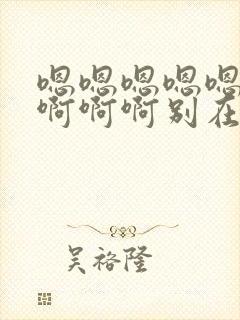 嗯嗯嗯嗯嗯
啊啊啊别在
吴裕隆